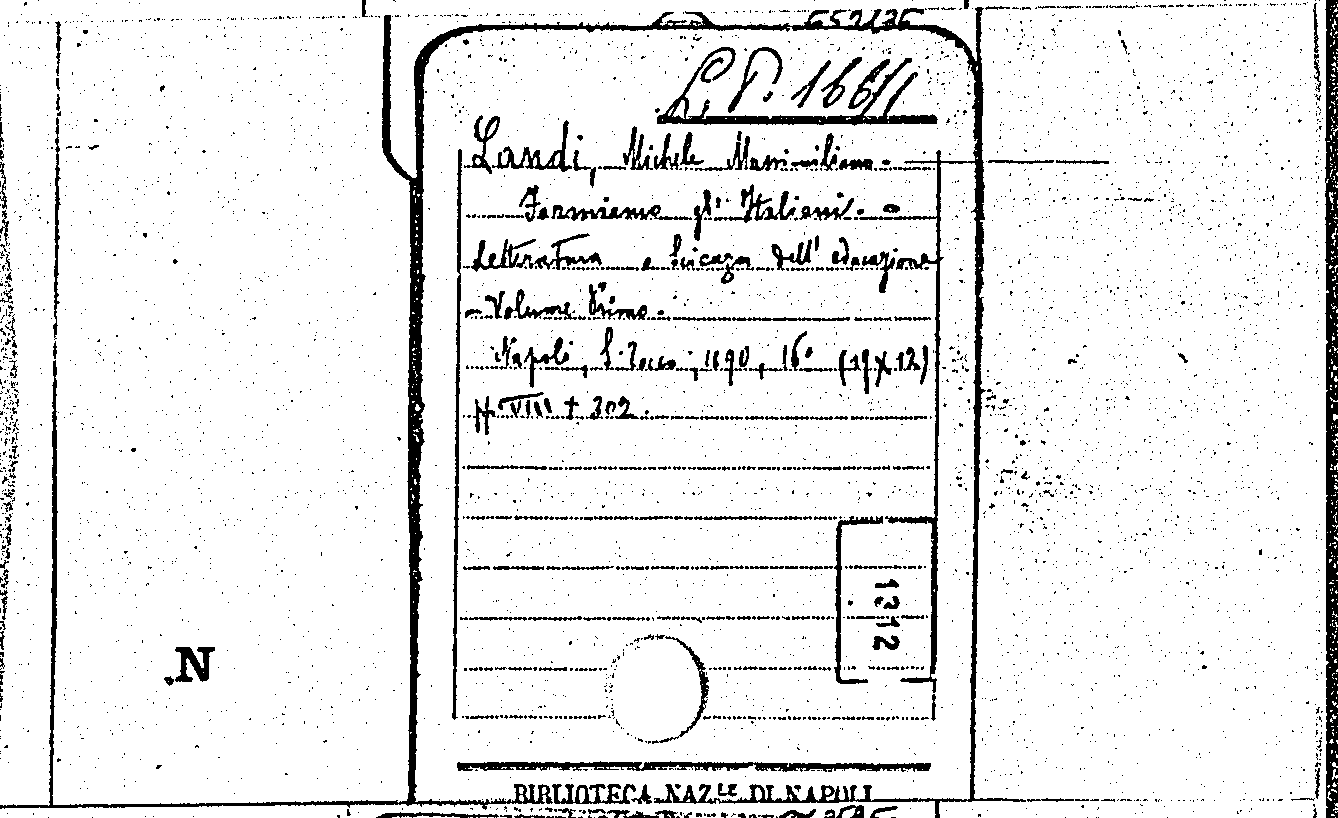 L. P. 166/1
Landi, Michele Massimiliano -
Formiamo gl' Italiani. -
Letteratura e Scienza dell' educazione
- Volume Primo -
Napoli, 1890, 16° (19X12)
VIII + 302.
1312
N
BIBLIOTECA NAZLE DI NAPOLI